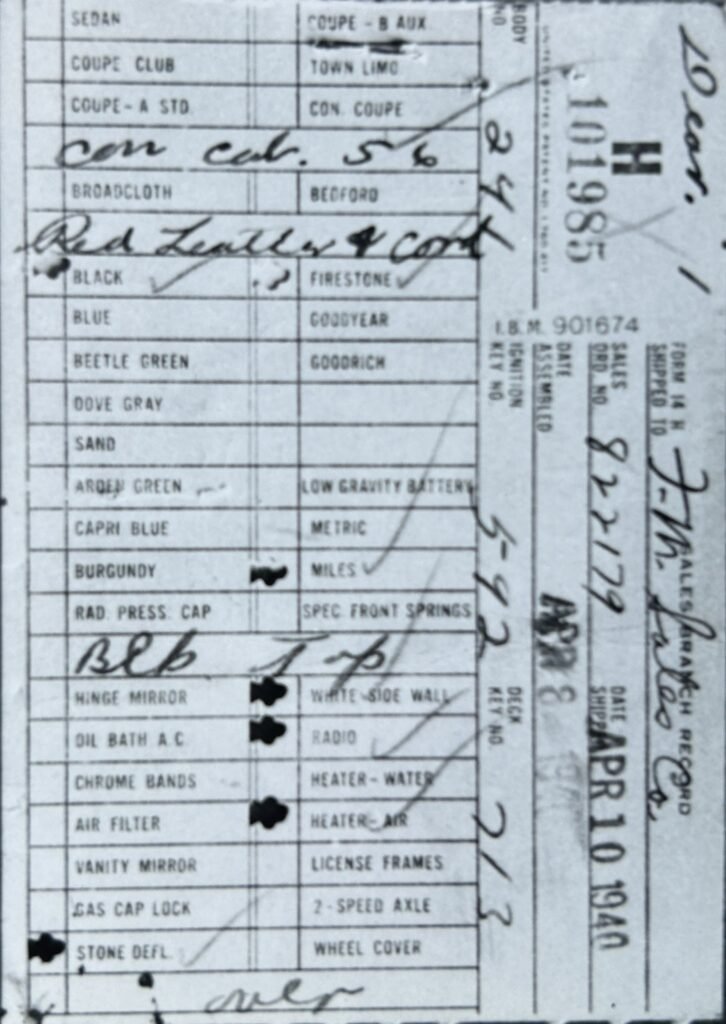 SEDAN COUPE - B AUX
COUPE CLUB TOWN LIMO
COUPE - A STD. CON. COUPE
con cab. 56
BROADCLOTH BEDFORD
Red Leather & Cord
BLACK FIRESTONE
BLUE GOODYEAR
BEETLE GREEN GOODRICH
DOVE GRAY
SAND
ARDEN GREEN LOW GRAVITY BATTERY
CAPRI BLUE METRIC
BURGUNDY MILES
RAD. PRESS. CAP SPEC. FRONT SPRINGS
Blk Top
HINGE MIRROR WHITE SIDE WALL
OIL BATH A.C. RADIO
CHROME BANDS HEATER - WATER
AIR FILTER HEATER - AIR
VANITY MIRROR LICENSE FRAMES
GAS CAP LOCK 2-SPEED AXLE
STONE DEFL. WHEEL COVER
over
Dear. 1
H
101985
I.B.M. 901674
FORM 14 H SALES BRANCH RECORD
SHIPPED TO J-M. Sales Co.
SALES ORD. NO. 822179 DATE SHIPPED APR 10 1940
DATE ASSEMBLED APR 8
BODY NO 241
IGNITION KEY NO. 542 DECK KEY NO. 213